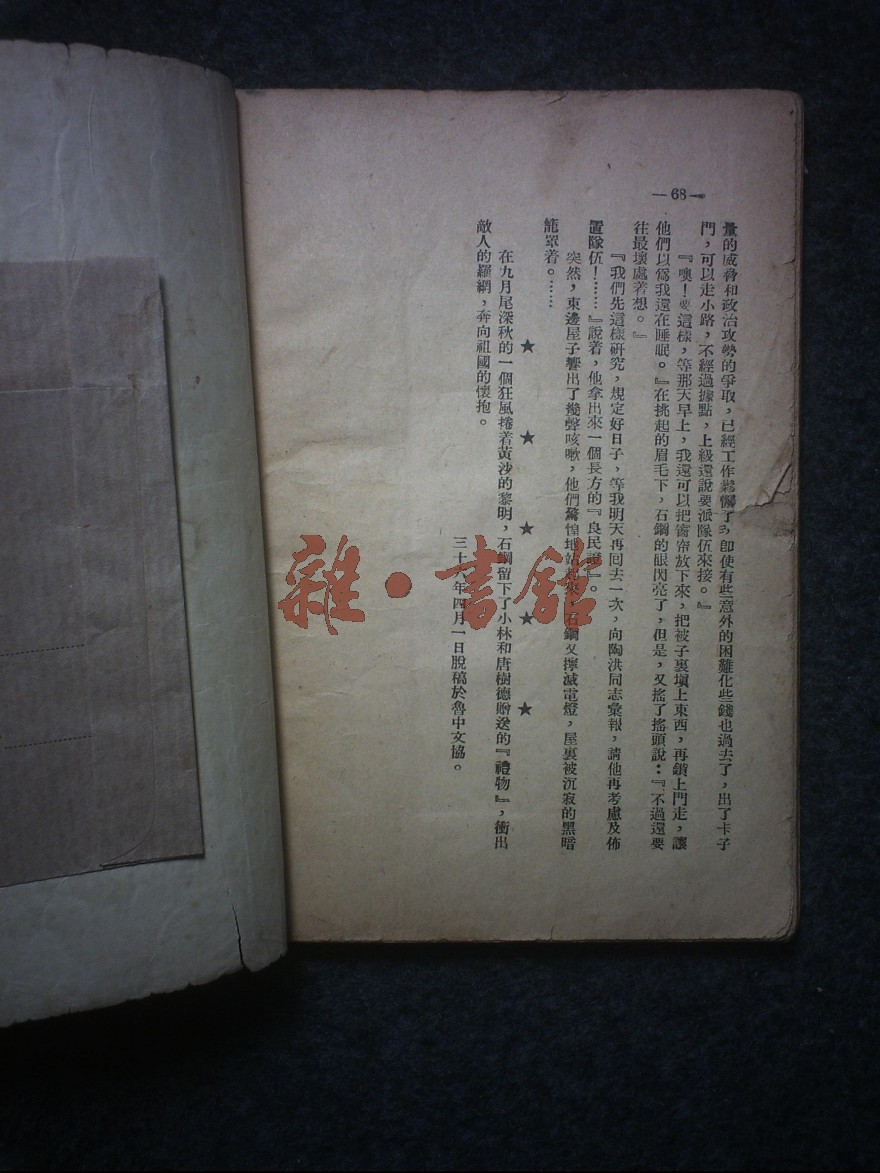 —68—
量的威脅和政治攻勢的爭取，已經工作鬆懈了，即使有些意外的困難化些錢也過去了，出了卡子
門，可以走小路，不經過據點，上級還說要派隊伍來接。』
『噢！要這樣，等那天早上，我還可以把窗帘放下來，把被子裏塡上東西，再鎖上門走，讓
他們以爲我還在睡眠。』在挑起的眉毛下，石鋼的眼閃亮了，但是，又搖了搖頭說：『不過還要
往最壞處著想。』
『我們先這樣研究，規定好日子，等我明天再回去一次，向陶洪同志彙報，請他再考慮及佈
置隊伍！……』說着，他拿出來一個長方的『良民證』。
突然，東邊屋子響出了幾聲咳嗽，他們驚惶地站起來，石鋼又擰滅電燈，屋裏被沉寂的黑暗
籠罩着。……
★ ★ ★ ★ ★
在九月尾深秋的一個狂風捲着黃沙的黎明，石鋼留下了小林和唐樹德贈送的『禮物』，衝出
敵人的羅網，奔向祖國的懷抱。
三十六年四月一日脫稿於魯中文協。
雜·書館